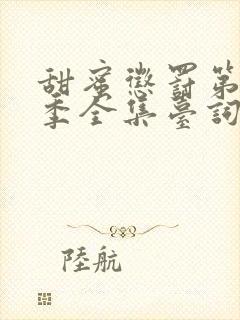 甜蜜懲罰第
季全集臺詞
陸航